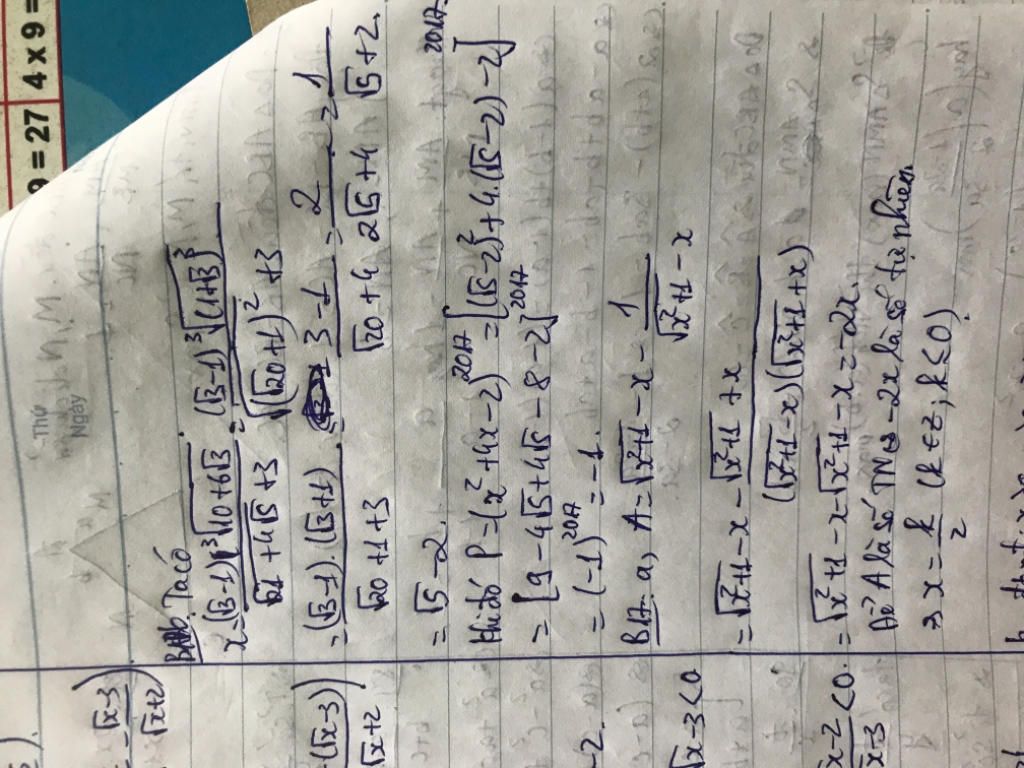 9 = 27 4 x 9 =
Thứ
Ngày
Ta có
x = (√3-1)·∛(10+6√3) / (√(21+4√5)+3) = (√3-1)·∛((1+√3)³) / (√((√20+1)²)+3)
= (√3-1).(√3+1) / (√20+1+3) = (3-1) / (√20+4) = 2 / (2√5+4) = 1 / (√5+2)
= √5-2.
Khi đó P = (x²+4x-2)²⁰¹⁷ = [(√5-2)²+4.(√5-2)-2]²⁰¹⁷
= [9-4√5+4√5-8-2]²⁰¹⁷
= (-1)²⁰¹⁷ = -1.
a, A = √(x²+1) - x - 1 / (√(x²+1) - x)
= √(x²+1) - x - (√(x²+1) + x) / ((√(x²+1) - x)(√(x²+1) + x))
= √(x²+1) - x - √(x²+1) - x = -2x.
Để A là số TN -2x là số tự nhiên
x = k/2 (k ∈ Z; k ≤ 0).
√x-3
√x+2
(√x-3)
√x+2
-2.
√x-3 < 0
√x-2 < 0.
√x-3